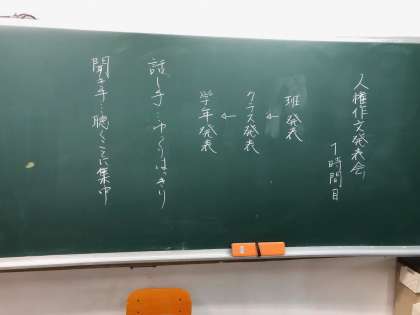 人権作文発表会
1時間目
班発表
↓
クラス発表
↓
学年発表
話し手…ゆっくりはっきり
聞き手…聴くことに集中